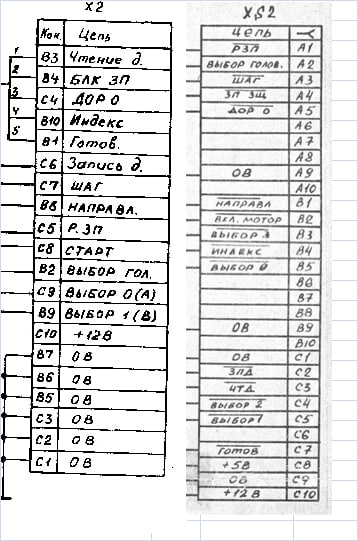 X2
Кон. Цепь
1 B3 Чтение д.
2 B4 БЛК ЗП
3 C4 ДОР 0
4 B10 Индекс
5 B1 Готов.
C6 Запись д.
C7 ШАГ
B8 НАПРАВЛ.
C5 Р.ЗП
C8 СТАРТ
B2 ВЫБОР ГОЛ.
C9 ВЫБОР 0(А)
B9 ВЫБОР 1(В)
C10 +12В
B7 0В
B6 0В
B5 0В
C3 0В
C2 0В
C1 0В
XS2
ЦЕПЬ
РЗП A1
ВЫБОР ГОЛОВ. A2
ШАГ A3
ЗП ЗЩ A4
ДОР 0 A5
A6
A7
A8
0В A9
A10
НАПРАВЛ B1
ВКЛ. МОТОР B2
ВЫБОР 3 B3
ИНДЕКС B4
ВЫБОР 0 B5
B6
B7
B8
0В B9
B10
0В C1
ЗПД C2
ЧТД C3
ВЫБОР 2 C4
ВЫБОР 1 C5
C6
ГОТОВ C7
+5В C8
0В C9
+12В C10